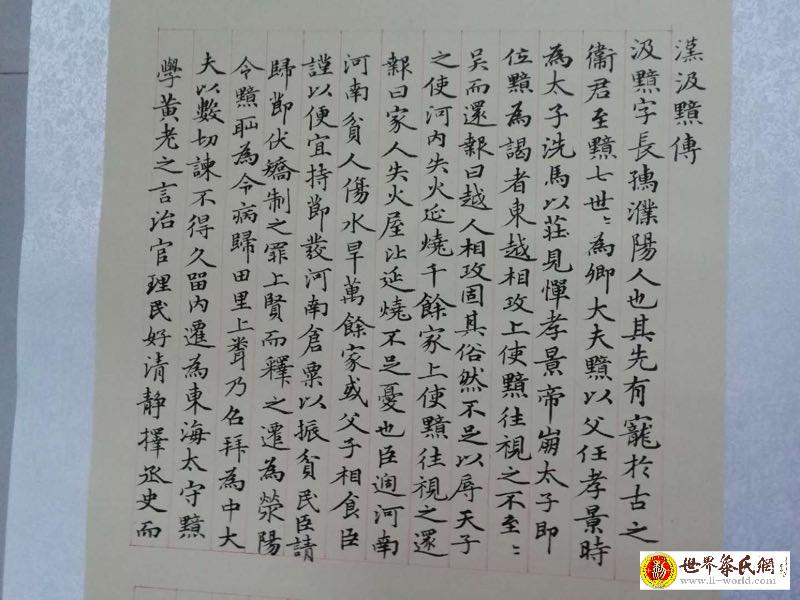 漢汲黯傳
汲黯字長孺濮陽人也其先有寵於古之
衞君至黯七世〻為卿大夫黯以父任孝景時
為太子洗馬以莊見憚孝景帝崩太子即
位黯為謁者東越相攻上使黯往視之不至〻
吳而還報曰越人相攻固其俗然不足以辱天子
之使河內失火延燒千餘家上使黯往視之還
報曰家人失火屋比延燒不足憂也臣過河南
河南貧人傷水旱萬餘家或父子相食臣
謹以便宜持節發河南倉粟以振貧民臣請
歸節伏矯制之罪上賢而釋之遷為滎陽
令黯恥為令病歸田里上聞乃召拜為中大
夫以數切諫不得久留內遷為東海太守黯
學黃老之言治官理民好清靜擇丞史而
世界李氏網
www.li-world.com